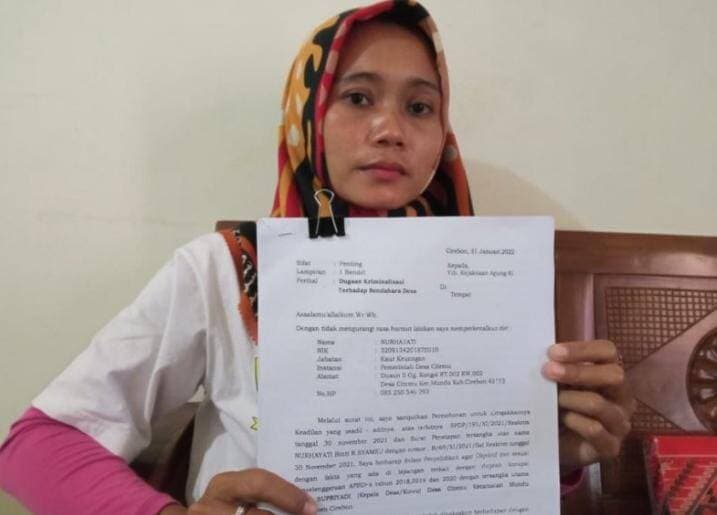 Cirebon, 31 Januari 2022
Sifat : Penting
Kepada,
Lampiran : 1 Bendel
Yth. Kejaksaan Agung RI.
Perihal : Dugaan Kriminalisasi
Di
Terhadap Bendahara Desa
Tempat
Assalamu'allaikum Wr Wb.
Dengan tidak mengurangi rasa hormat ijinkan saya memperkenalkan diri
Nama : NURHAYATI
NIK :
Jabatan : Kaur Keuangan
Instansi : Pemerintah Desa Citemu
Alamat : Dusun 2 Gg. Rangai RT.002 RW.002
Desa Citemu Kec Mundu Kab.Cirebon 45173
No.HP :
Melalui surat ini, saya sampaikan Permohonan untuk Ditegakkannya
Keadilan yang seadil - adilnya, atas terbitnya SPDP/191/XI/2021/Reskrim
tanggal 30 november 2021 dan Surat Penetapan tersangka atas nama
NURHAYATI Binti R.SYAMSU dengan nomor
30 November 2021. Saya berharap dalam Penyelidikan agar Objektif dan sesuai
dengan fakta yang ada di lapangan terkait dengan dugaan korupsi
penyelenggaraan APBD-s tahun 2018,2019 dan 2020 dengan tersangka utama
SUPRIYADI (Kepala Desa/Kuwu) Desa Citemu Kecamatan Mundu
Cirebon